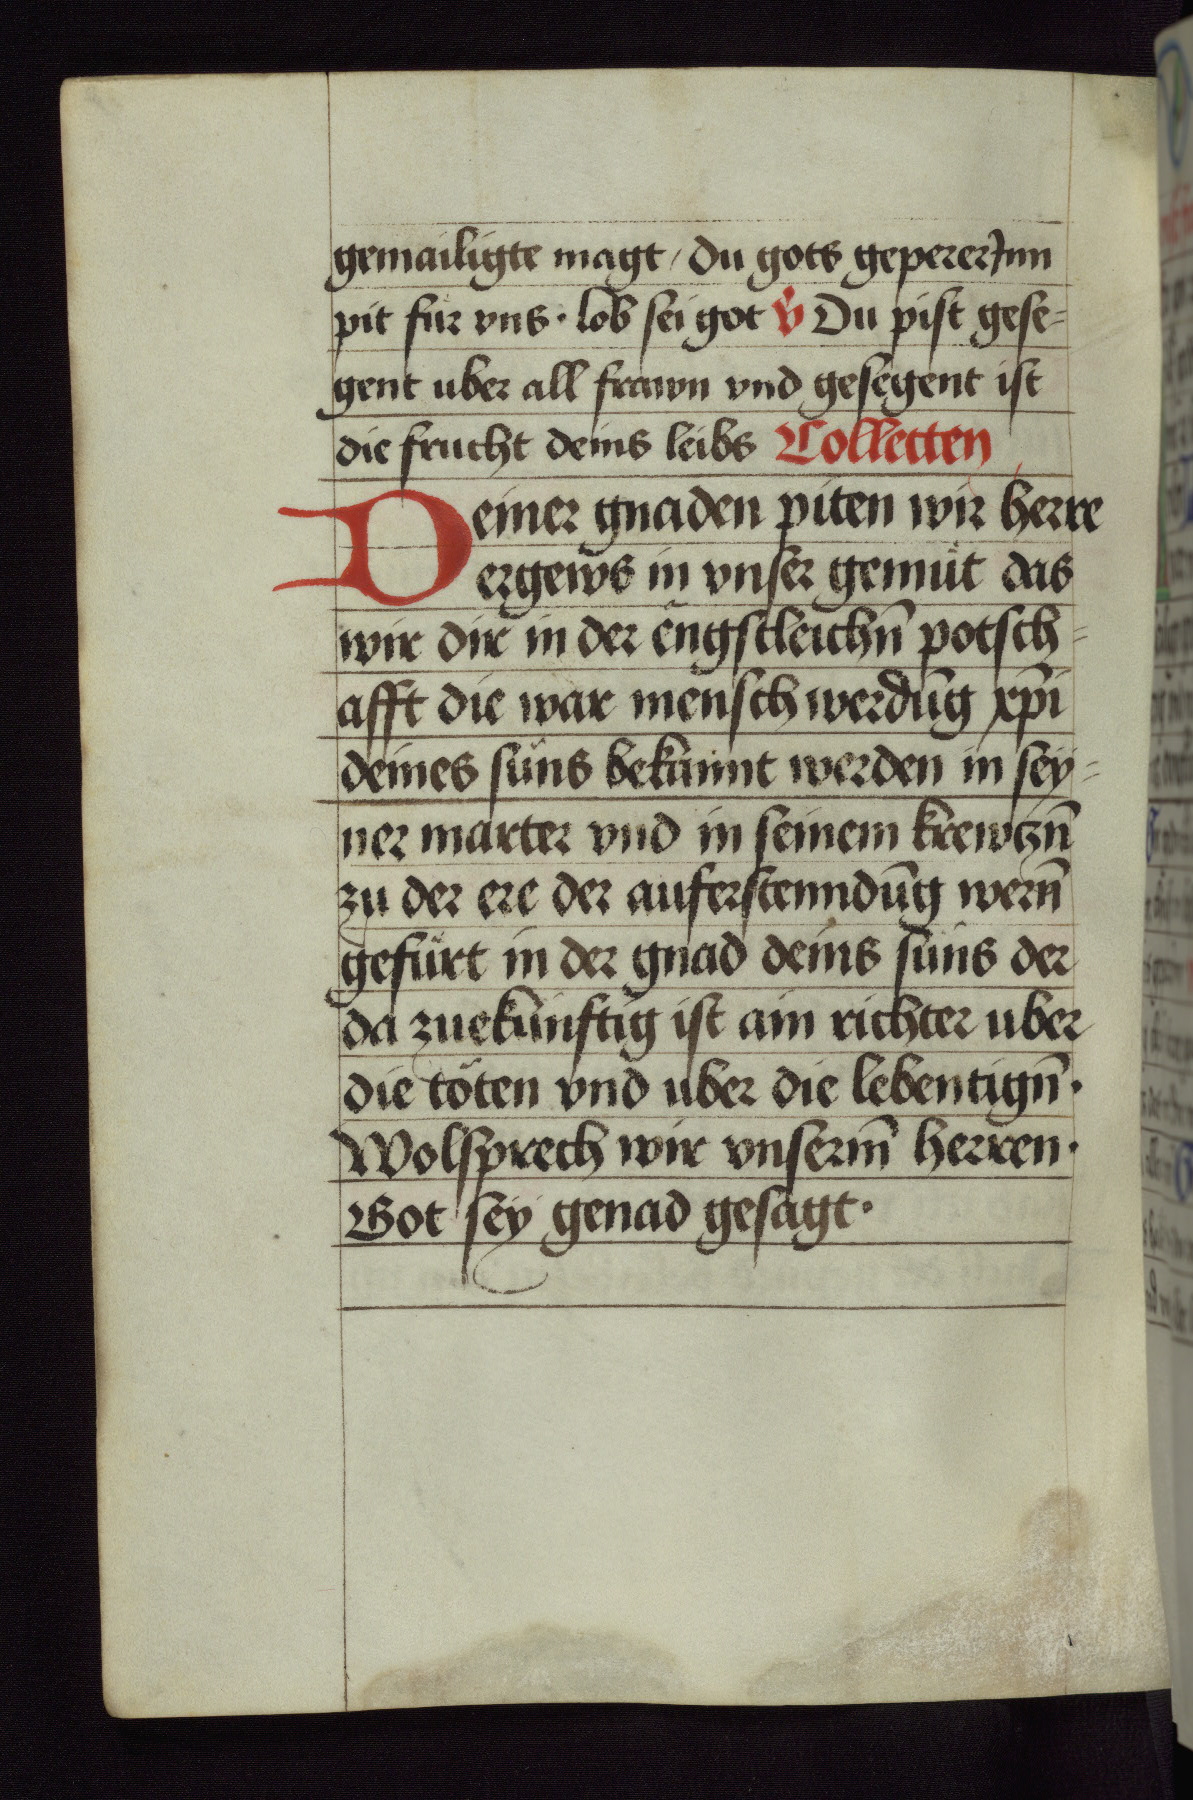 gemailigte magt / du gots gepererJnn
pit für vns · lob sei got v̊ Du pist gese⸗
gent uber all frawn vnd gesegent ist
die frucht deins leibs Collecten
Deiner gnaden piten wir herre
ergews in vnser gemüt das
wir dir in der engstleichn̄ potsch⸗
afft die war mensch werdūg xp̄i
deines süns bekannt werden in sey⸗
ner marter vnd in seinem krewtzn̄
zu der ere der auferstenndūg wern̄
gefürt in der gnad deins süns der
da zuekünftig ist ain richter uber
die töten vnd uber die lebentign̄ ·
Wolsprech wir vnserm̄ herren ·
Got sey genad gesagt ·